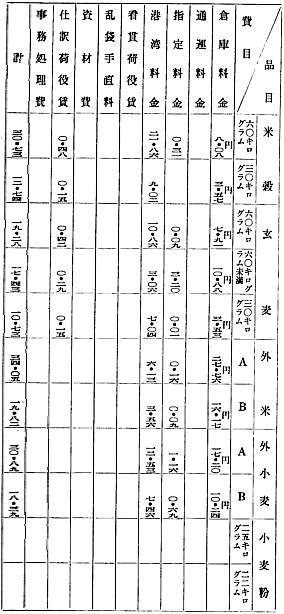 品目
費目
米穀
玄麦
外米
外小麦
小麦粉
六〇キログラム
三〇キログラム
六〇キログラム
六〇キログラム未満
三〇キログラム
A
B
A
B
二五キログラム
二二キログラム
倉庫料金 八・〇八円 三・五七円 七・九二円 一〇・八八円 三・五三円 二七・七六円 一六・一七円 一七・二〇円 一〇・二四円
通運料金
指定料金 〇・三一 〇・〇九 三・二〇 〇・〇一 〇・一六 〇・〇九 一・一六 〇・六九
港湾料金 二一・八六 九・〇二 一〇・八六 三・〇六 七・〇四 六・一三 三・五六 一二・五三 七・四六
看貫荷役賃
乱袋手直料
資材費
仕訳荷役賃 〇・四八 〇・一五 〇・四二 〇・二九 〇・一五
事務処理費
計 三〇・七三 一二・七四 一九・二八 一七・四三 一〇・七三 三四・〇五 一九・八二 三〇・八九 一八・三九